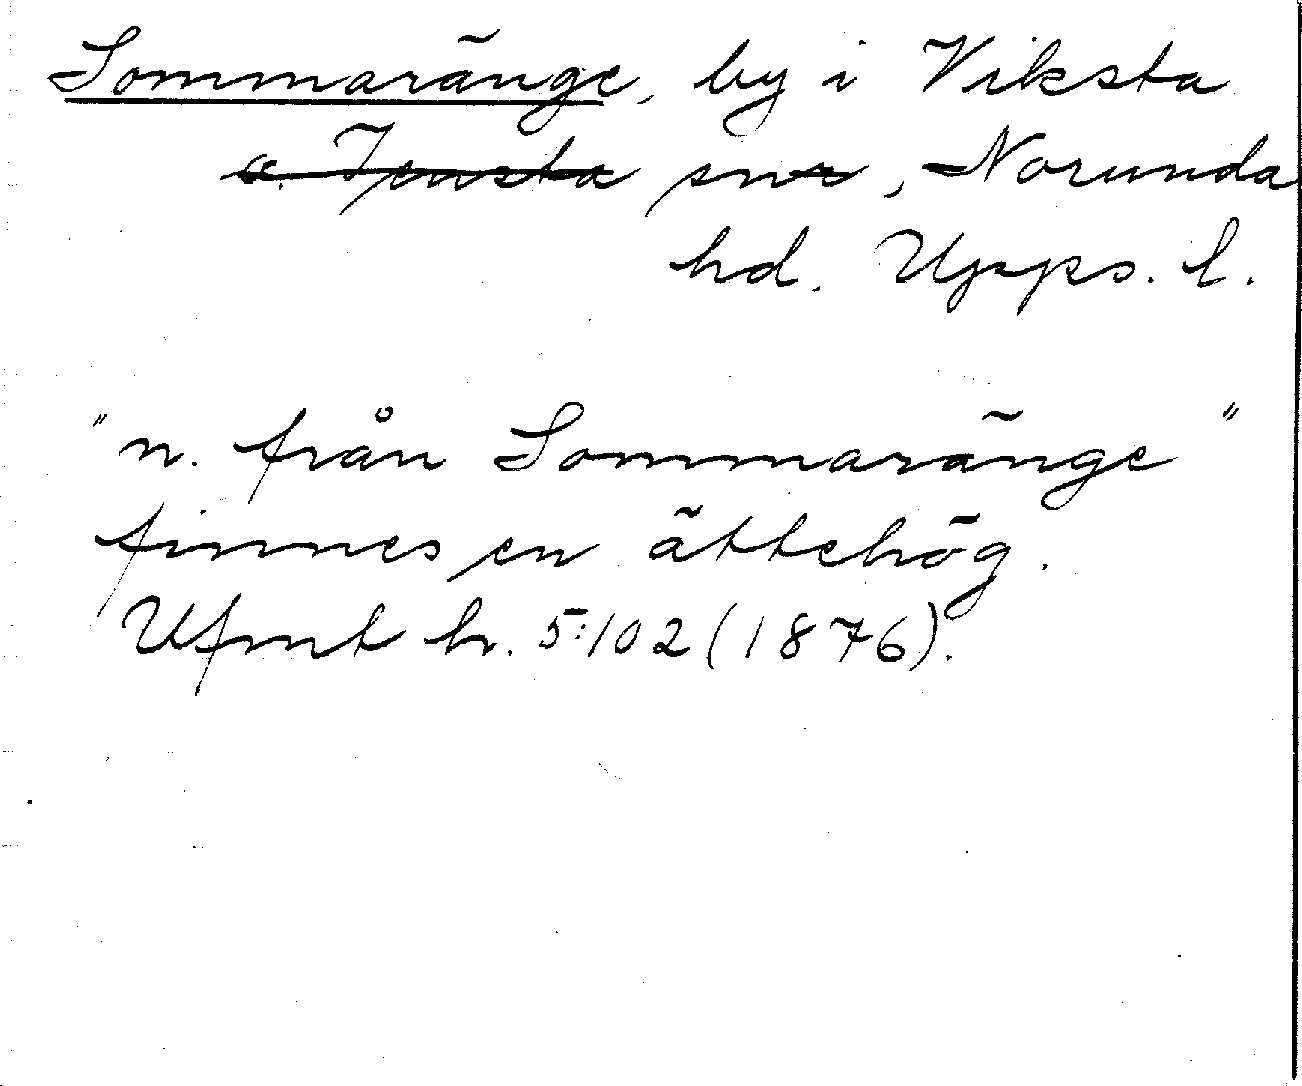 Sommaränge, by i Viksta
o. Tensta snr, Norunda
hd. Upps. l.
"n. från Sommaränge"
finnes en ättehög.
Ufmt h. 5:102 (1876).